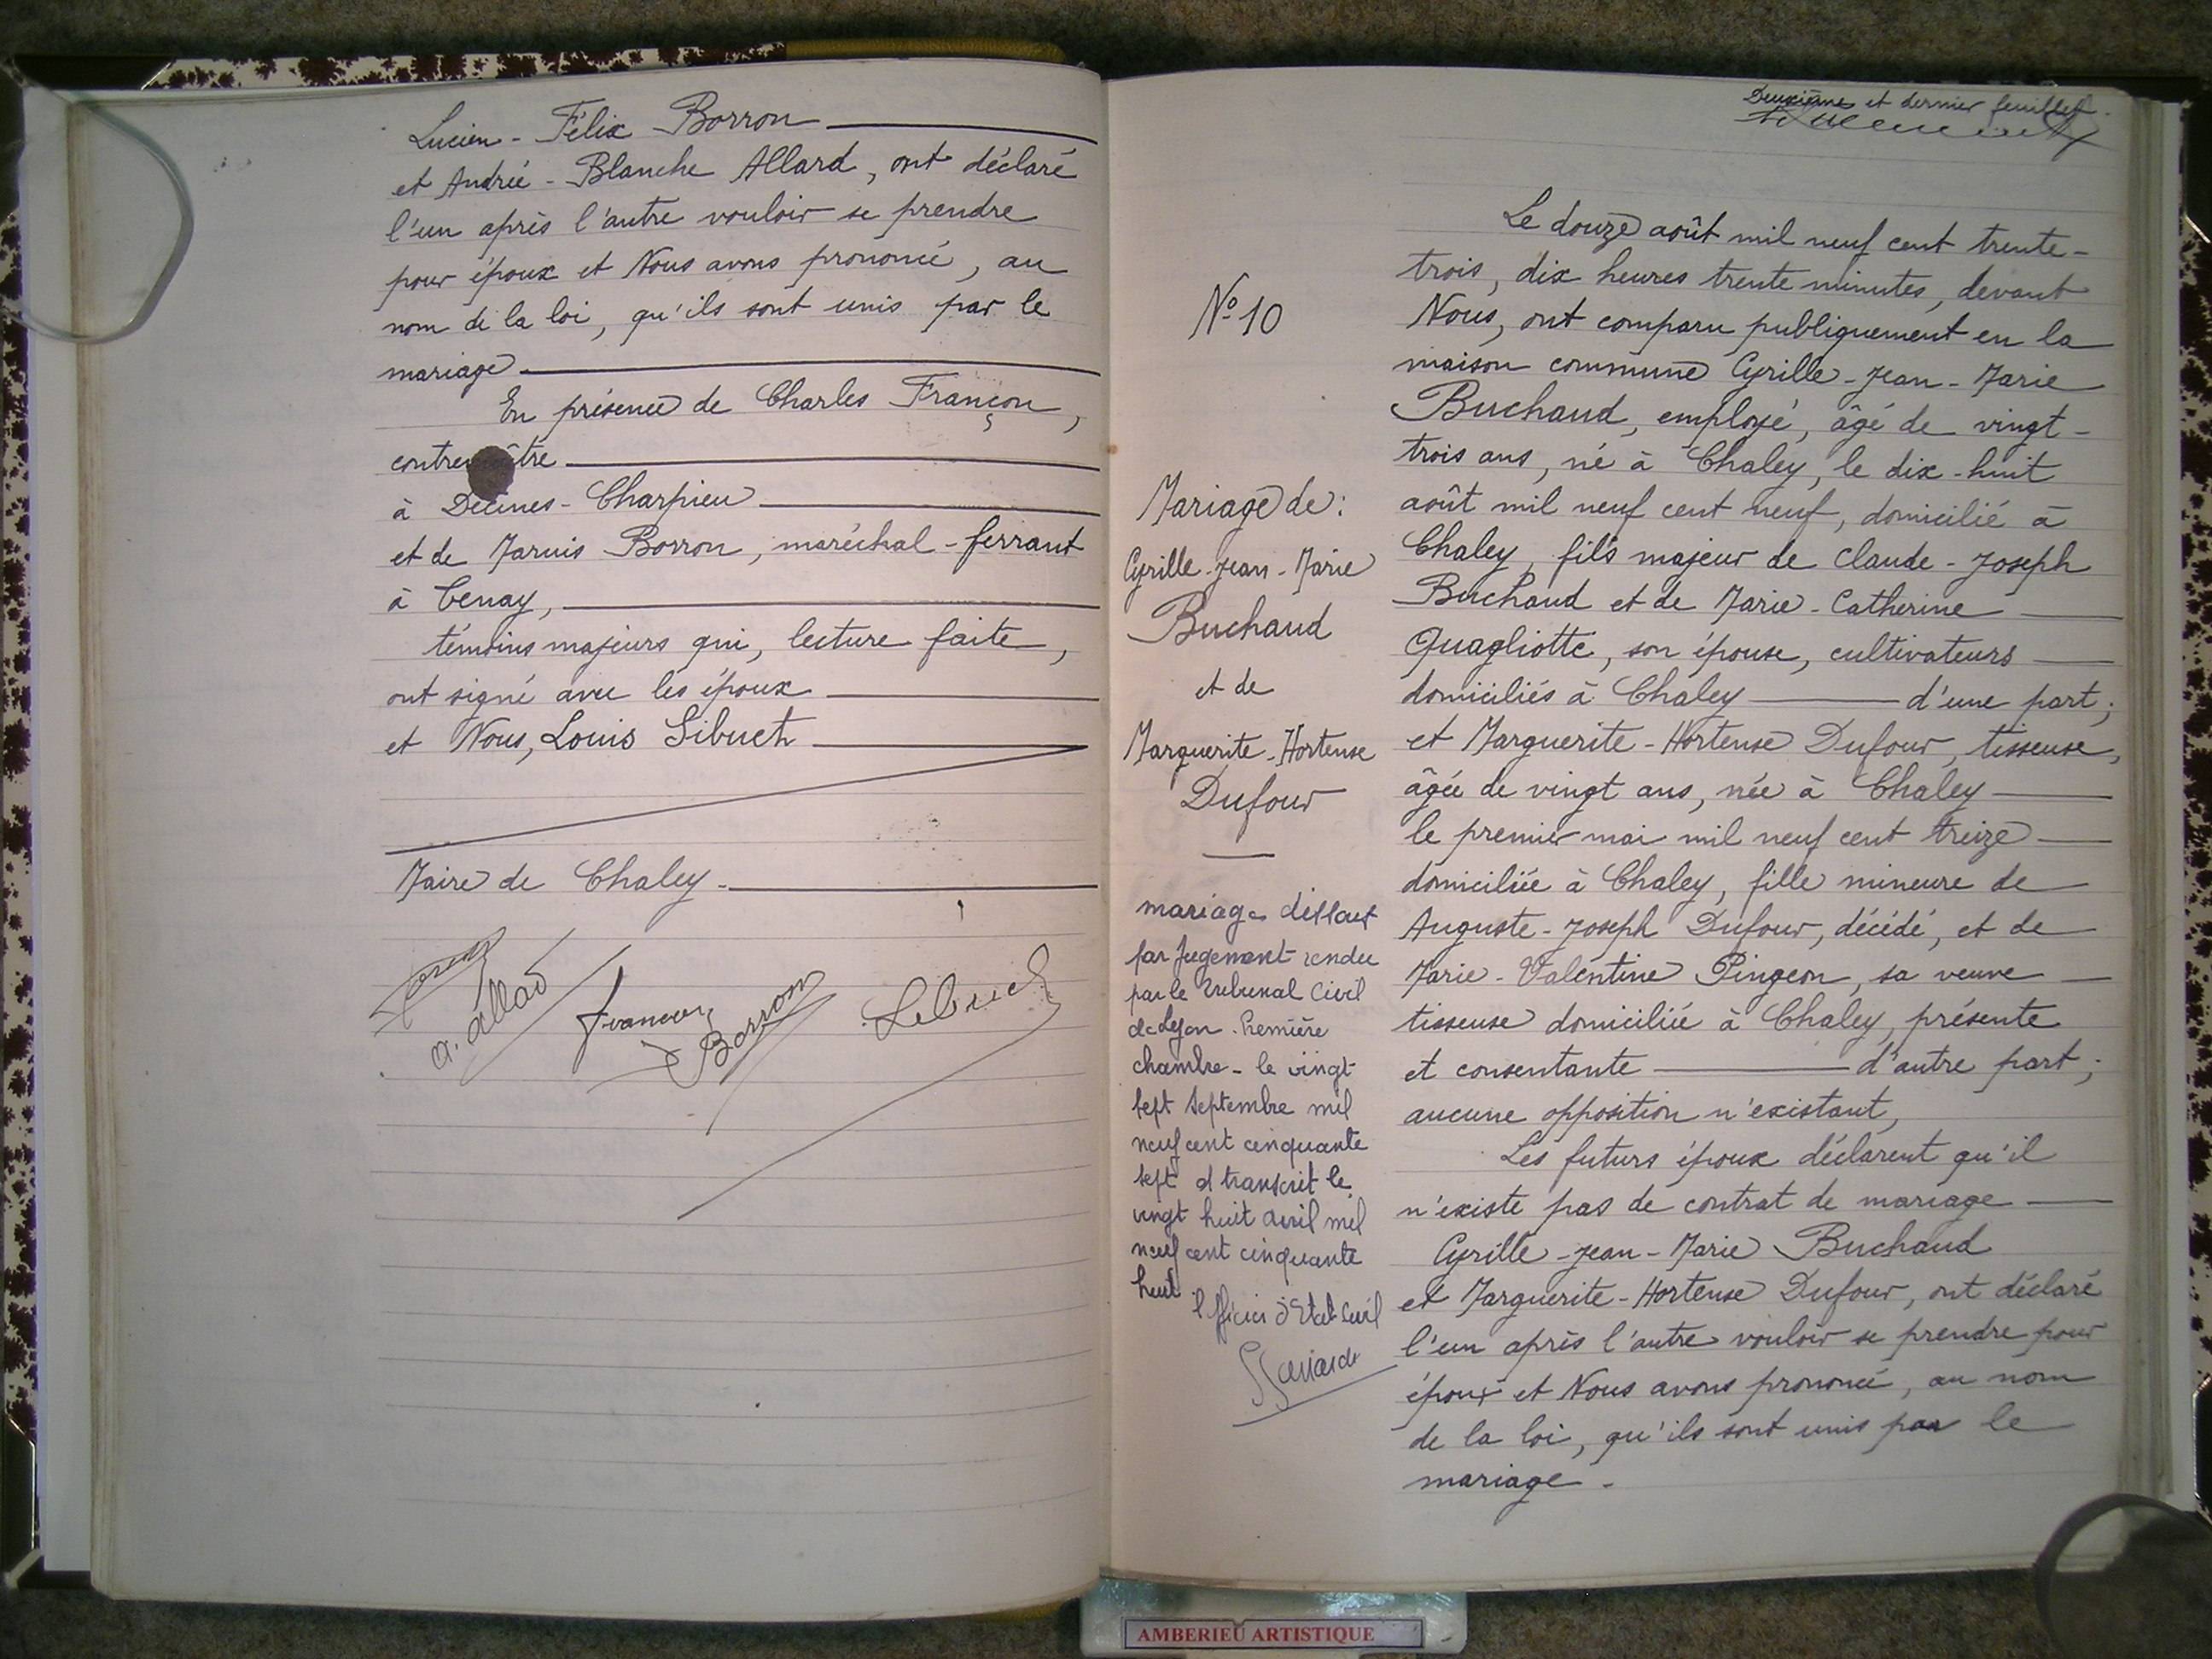 Lucien - Félix Borron
et Andrée - Blanche Allard, ont déclaré
l'un après l'autre vouloir se prendre
pour époux et Nous avons prononcé, au
nom de la loi, qu'ils sont unis par le
mariage.
En présence de Charles Françon,
contremaître
à Décines - Charpieu
et de Marius Borron, maréchal - ferrant
à Tenay,
témoins majeurs qui, lecture faite,
ont signé avec les époux
et Nous, Louis Sibuet
Maire de Chaley.
a. allard
Borron
Deuxième et dernier feuillet.
N° 10
Mariage de :
Cyrille - Jean - Marie
Buchaud
et de
Marguerite - Hortense
Dufour
mariage dissout
par Jugement rendu
par le Tribunal Civil
de Lyon. Première
chambre - le vingt
sept Septembre mil
neuf cent cinquante
sept et transcrit le
vingt huit avril mil
neuf cent cinquante
huit
l'officier d'Etat Civil
Le douze août mil neuf cent trente-
trois, dix heures trente minutes, devant
Nous, ont comparu publiquement en la
maison commune Cyrille - Jean - Marie
Buchaud, employé, âgé de vingt-
trois ans, né à Chaley, le dix-huit
août mil neuf cent neuf, domicilié à
Chaley, fils majeur de Claude - Joseph
Buchaud et de Marie - Catherine
Quagliotti, son épouse, cultivateurs
domiciliés à Chaley d'une part;
et Marguerite - Hortense Dufour, tisseuse,
âgée de vingt ans, née à Chaley
le premier mai mil neuf cent treize
domiciliée à Chaley, fille mineure de
Auguste - Joseph Dufour, décédé, et de
Marie - Valentine Pingeon, sa veuve
tisseuse domiciliée à Chaley, présente
et consentante d'autre part;
aucune opposition n'existant,
Les futurs époux déclarent qu'il
n'existe pas de contrat de mariage
Cyrille - Jean - Marie Buchaud
et Marguerite - Hortense Dufour, ont déclaré
l'un après l'autre vouloir se prendre pour
époux et Nous avons prononcé, au nom
de la loi, qu'ils sont unis par le
mariage.
AMBERIEU ARTISTIQUE